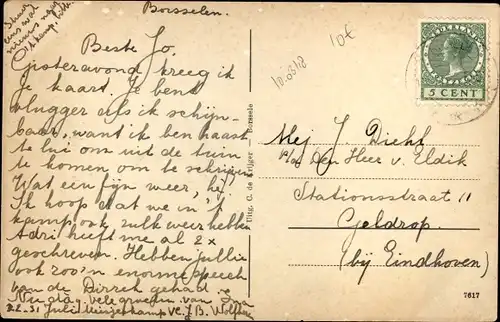 Borsselen.
Beste Jo,
Gisteravond kreeg ik
je kaart. Je bent
vlugger als ik schijn-
baar, want ik ben haast
te lui om uit de tuin
te komen om te schrijven
Wat een fijn weer, hè.
Ik hoop dat we in 't
kamp ook zulk weer hebben
Adri heeft me al 2x
geschreven. Hebben jullie
ook zoo'n enorme speech
van de Birrek gehad.
Nu dag, vele groeten van
22-31 Juli V.C.J.B.
Uitg. C. de Krijger — Borssele
10€
5 CENT
Mej J. Diehl
p/a Den Heer v. Eldik
Stationsstraat 11
Geldrop.
(bij Eindhoven)
7617